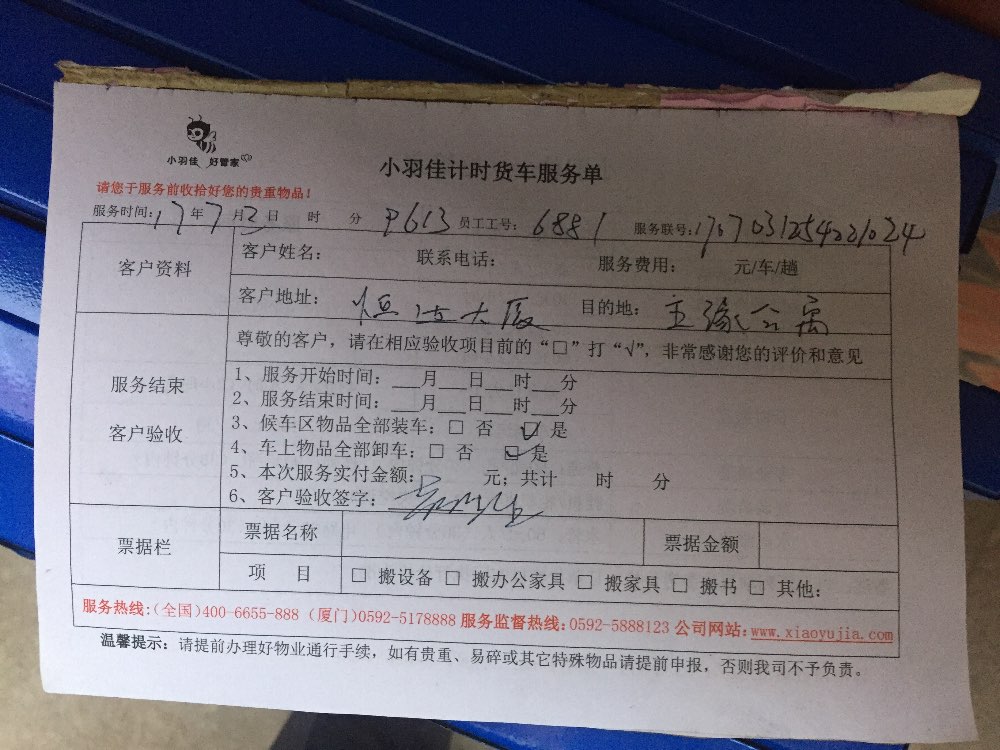 小羽佳 好管家
小羽佳计时货车服务单
请您于服务前收拾好您的贵重物品！
服务时间：17年7月3日 时 分 P613 员工工号：6881 服务联号：
客户资料
客户姓名： 联系电话： 服务费用： 元/车/趟
客户地址： 大厦 目的地： 公寓
服务结束
客户验收
尊敬的客户，请在相应验收项目前的“□”打“√”，非常感谢您的评价和意见
1、服务开始时间：___月___日___时___分
2、服务结束时间：___月___日___时___分
3、候车区物品全部装车：□ 否 ☑ 是
4、车上物品全部卸车：□ 否 ☑ 是
5、本次服务实付金额： 元；共计 时 分
6、客户验收签字：
票据栏
票据名称 票据金额
项 目 □ 搬设备 □ 搬办公家具 □ 搬家具 □ 搬书 □ 其他：
服务热线：（全国）400-6655-888（厦门）0592-5178888 服务监督热线：0592-5888123 公司网站：www.xiaoyujia.com
温馨提示：请提前办理好物业通行手续，如有贵重、易碎或其它特殊物品请提前申报，否则我司不予负责。